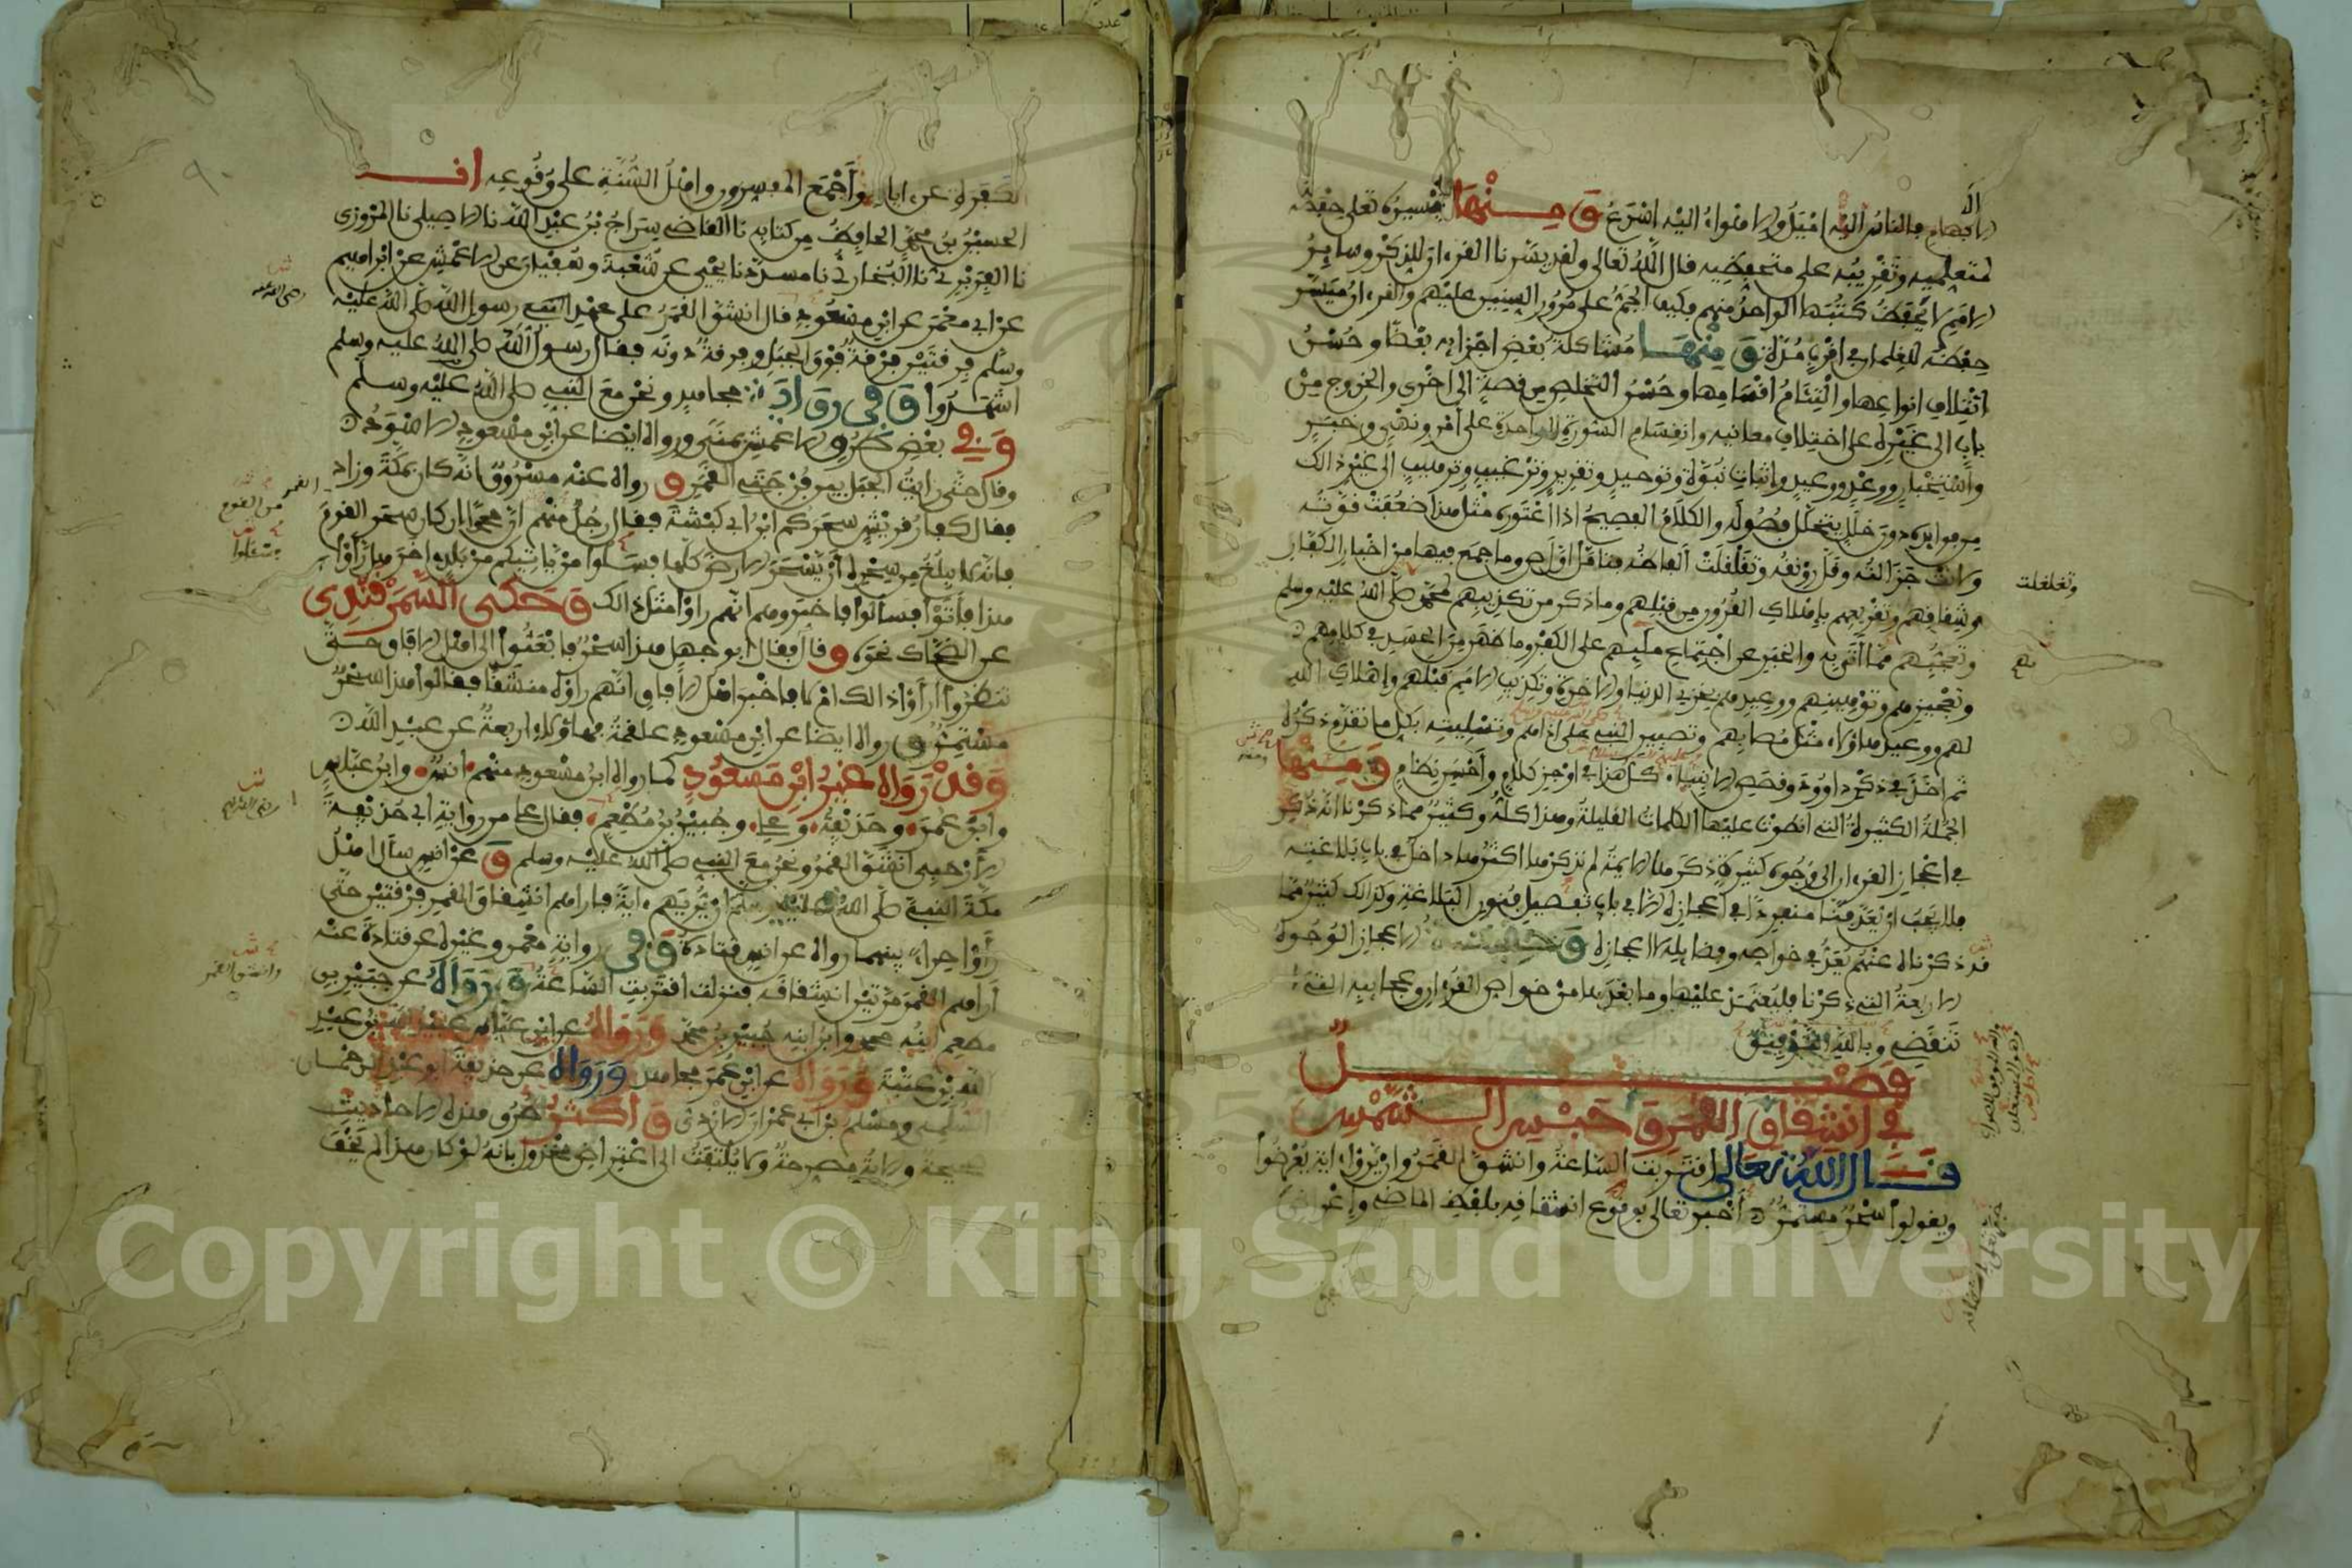 الافهام فالناس اليه اميل والاهواء اليه اسرع ومنها تيسيره تعالى حفظه
لمتعلميه وتقريبه على متحفظيه قال الله تعالى ولقد يسرنا القرءان للذكر وسائر
الامم لا يحفظ كتبها الواحد منهم فكيف الجم على مرور السنين عليهم والقرءان ميسر
حفظه للغلمان في اقرب مدة ومنها مشاكلة بعض اجزائه بعضا وحسن
ائتلاف انواعها والتئام اقسامها وحسن التخلص من قصة الى اخرى والخروج من
باب الى غيره على اختلاف معانيه وانقسام السورة الواحدة على امر ونهي وخبر
واستخبار ووعد ووعيد واثبات نبوة وتوحيد وتقرير وترغيب وترهيب الى غير ذالك
من فوايده دون خلل يتخلل فصوله والكلام الفصيح اذا اعتوره مثل هذا ضعفت قوته
ولانت جزالته وقل رونقه وتقلقلت الفاظه فتامل اول ص وما جمع فيها من اخبار الكفار
وتغلغلت
وشقاقهم وتقريعهم باهلاك القرون من قبلهم وما ذكر من تكذيبهم لمحمد صلى الله عليه وسلم
وتعجبهم مما اتى به والخبر عن اجتماع ملئهم على الكفر وما ظهر من الحسد في كلامهم
وتعجيزهم وتوهينهم ووعيدهم بخزي الدنيا والاخرة وتكذيب الامم قبلهم واهلاك الله
لهم ووعيد هؤلاء مثل مصابهم وتصبير النبي على اذاهم وتسليته بكل ما تقدم ذكره
ثم اخذ في ذكر داوود وقصص الانبياء كل هذا في اوجز كلام واحسن نظام ومنها
الجملة الكثيرة التي انطوت عليها الكلمات القليلة وهذا كله وكثير مما ذكرنا انه ذكر
في اعجاز القرءان الى وجوه كثيرة ذكرها الايمة لم نذكرها اكثرها داخل في باب بلاغته
فلا يجب ان يعد فنا منفردا في اعجازه الا في باب تفصيل فنون البلاغة وكذالك كثير مما
قد ذكرناه عنهم يعد في خواصه وفضايله لا اعجازه وحقيقة الاعجاز الوجوه
الاربعة التي ذكرنا فليعتمد عليها وما بعدها من خواص القرءان وعجايبه التي لا
تنقضي وبالله التوفيق
فصل
في انشقاق القمر وحبس الشمس
قال الله تعالى اقتربت الساعة وانشق القمر وان يروا اية يعرضوا
ويقولوا سحر مستمر اخبر تعالى بوقوع انشقاقه بلفظ الماضي واعراض
الكفرة عن اياته واجمع المفسرون واهل السنة على وقوعه انا
الحسين بن محمد الحافظ من كتابه نا القاضي سراج بن عبد الله نا الاصيلي نا المروزي
نا الفربري نا البخاري نا مسدد نا يحيى عن شعبة وسفيان عن الاعمش عن ابراهيم
عن ابي معمر عن ابن مسعود قال انشق القمر على عهد رسول الله صلى الله عليه
رضي الله عنه
وسلم فرقتين فرقة فوق الجبل وفرقة دونه فقال رسول الله صلى الله عليه وسلم
اشهدوا وفي رواية مجاهد ونحن مع النبي صلى الله عليه وسلم
وفي بعض طرق الاعمش بمنى ورواه ايضا عن ابن مسعود الاسود
وقال حتى رايت الجبل بين فرجتي القمر ورواه عنه مسروق انه كان بمكة وزاد
فقال كفار قريش سحركم ابن ابي كبشة فقال رجل منهم ان محمدا ان كان سحر القمر
فانه لا يبلغ من سحره ان يسحر الارض كلها فسلوا من ياتيكم من بلد اخر هل راوا
هذا فاتوا فسالوا فاخبروهم انهم راوا مثل ذالك وحكى السمرقندي
عن الضحاك نحوه وقال فقال ابو جهل هذا سحر فابعثوا الى اهل الافاق حتى
تنظروا اراوا ذالك ام لا فاخبر اهل الافاق انهم راوه منشقا فقالوا هذا سحر
مستمر ورواه ايضا عن ابن مسعود علقمة فهاؤلاء اربعة عن عبد الله
وقد رواه غير ابن مسعود كما رواه ابن مسعود منهم انس وابن عباس
وابن عمر وحذيفة وعلي وجبير بن مطعم فقال علي من رواية ابي حذيفة
الارحبي انشق القمر ونحن مع النبي صلى الله عليه وسلم وعن انس سال اهل
مكة النبي صلى الله عليه وسلم ان يريهم ءاية فاراهم انشقاق القمر فرقتين حتى
راوا حراء بينهما رواه عن انس قتادة وفي رواية معمر وغيره عن قتادة عنه
وانشق القمر
اراهم القمر مرتين انشقاقه فنزلت اقتربت الساعة ورواه عن جبير بن
مطعم ابنه محمد وابن ابنه جبير بن محمد ورواه عن ابن عباس عبيد الله بن عبد
الله بن عتبة ورواه عن ابن عمر مجاهد ورواه عن حذيفة ابو عبد الرحمان
السلمي ومسلم بن ابي عمران الازدي واكثر طرق هذه الاحاديث
صحيحة والاية مصرحة ولا يلتفت الى اعتراض مخذول بانه لو كان هذا لم يخف
Copyright © King Saud University